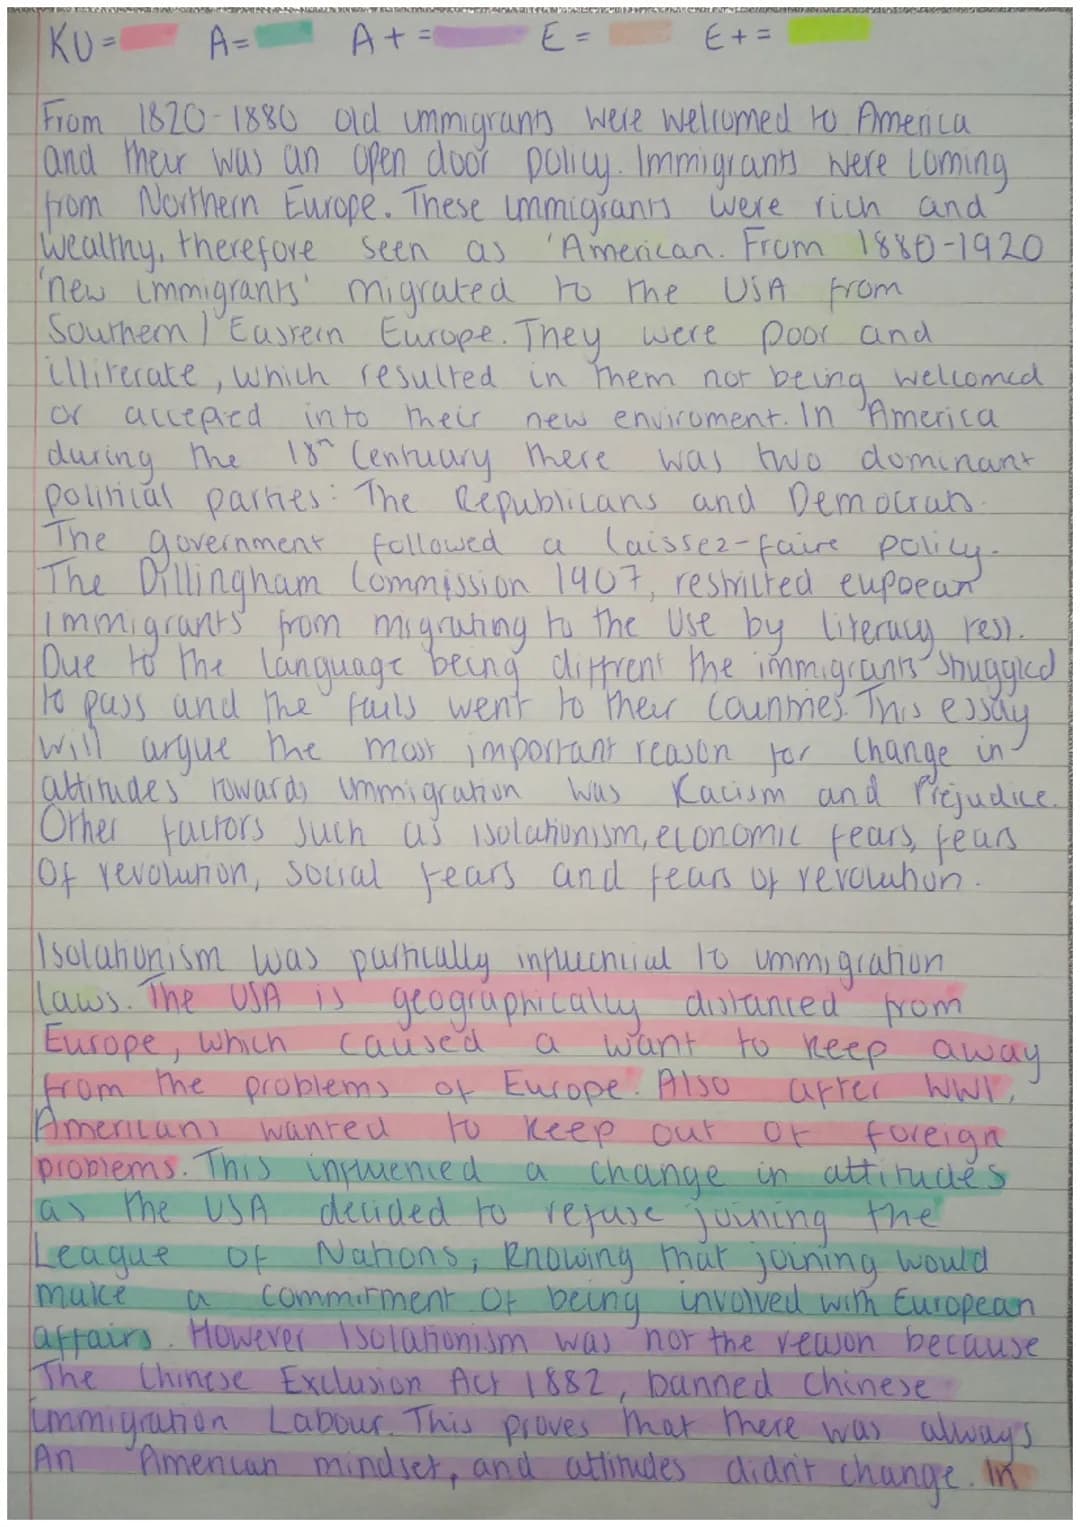 KU= A= A+= E= E+=
From 1820-1880 old immigrants were welcomed to America
and their was an open door policy. Immigrants were coming
from Northern Europe. These immigrants were rich and
wealthy, therefore seen as 'American. From 1880-1920
'new immigrants' migrated to the USA from
Southern / Eastern Europe. They were poor and
illiterate, which resulted in them not being welcomed
or accepted into their new enviroment. In America
during the 18th Centuary there was two dominant
political parties: The Republicans and Democrats.
The government followed a laissez-faire policy.
The Dillingham Commission 1907, restricted eupoean
immigrants from migrating to the Use by literacy test.
Due to the language being diffrent the immigrants struggled
to pass and the fails went to their countries. This essay
will argue the most important reason for change in
attitudes towards immigration was Racism and Prejudice.
Other factors such as isolationism, economic fears, fears
of revolution, social fears and fears of revolution.
Isolationism was partically influencial to immigration
laws. The USA is geographically distanced from
Europe, which caused a want to keep away
from the problems of Europe. Also after WW1,
Americans wanted to keep out of foreign
problems. This influenced a change in attitudes
as the USA decided to refuse joining the
League of Nations, knowing that joining would
make a commitment of being involved with European
affairs. However Isolationism was not the reason because
The Chinese Exclusion Act 1882, banned chinese
immigration Labour. This proves that there was always
An American mindset, and attitudes didn't change. In